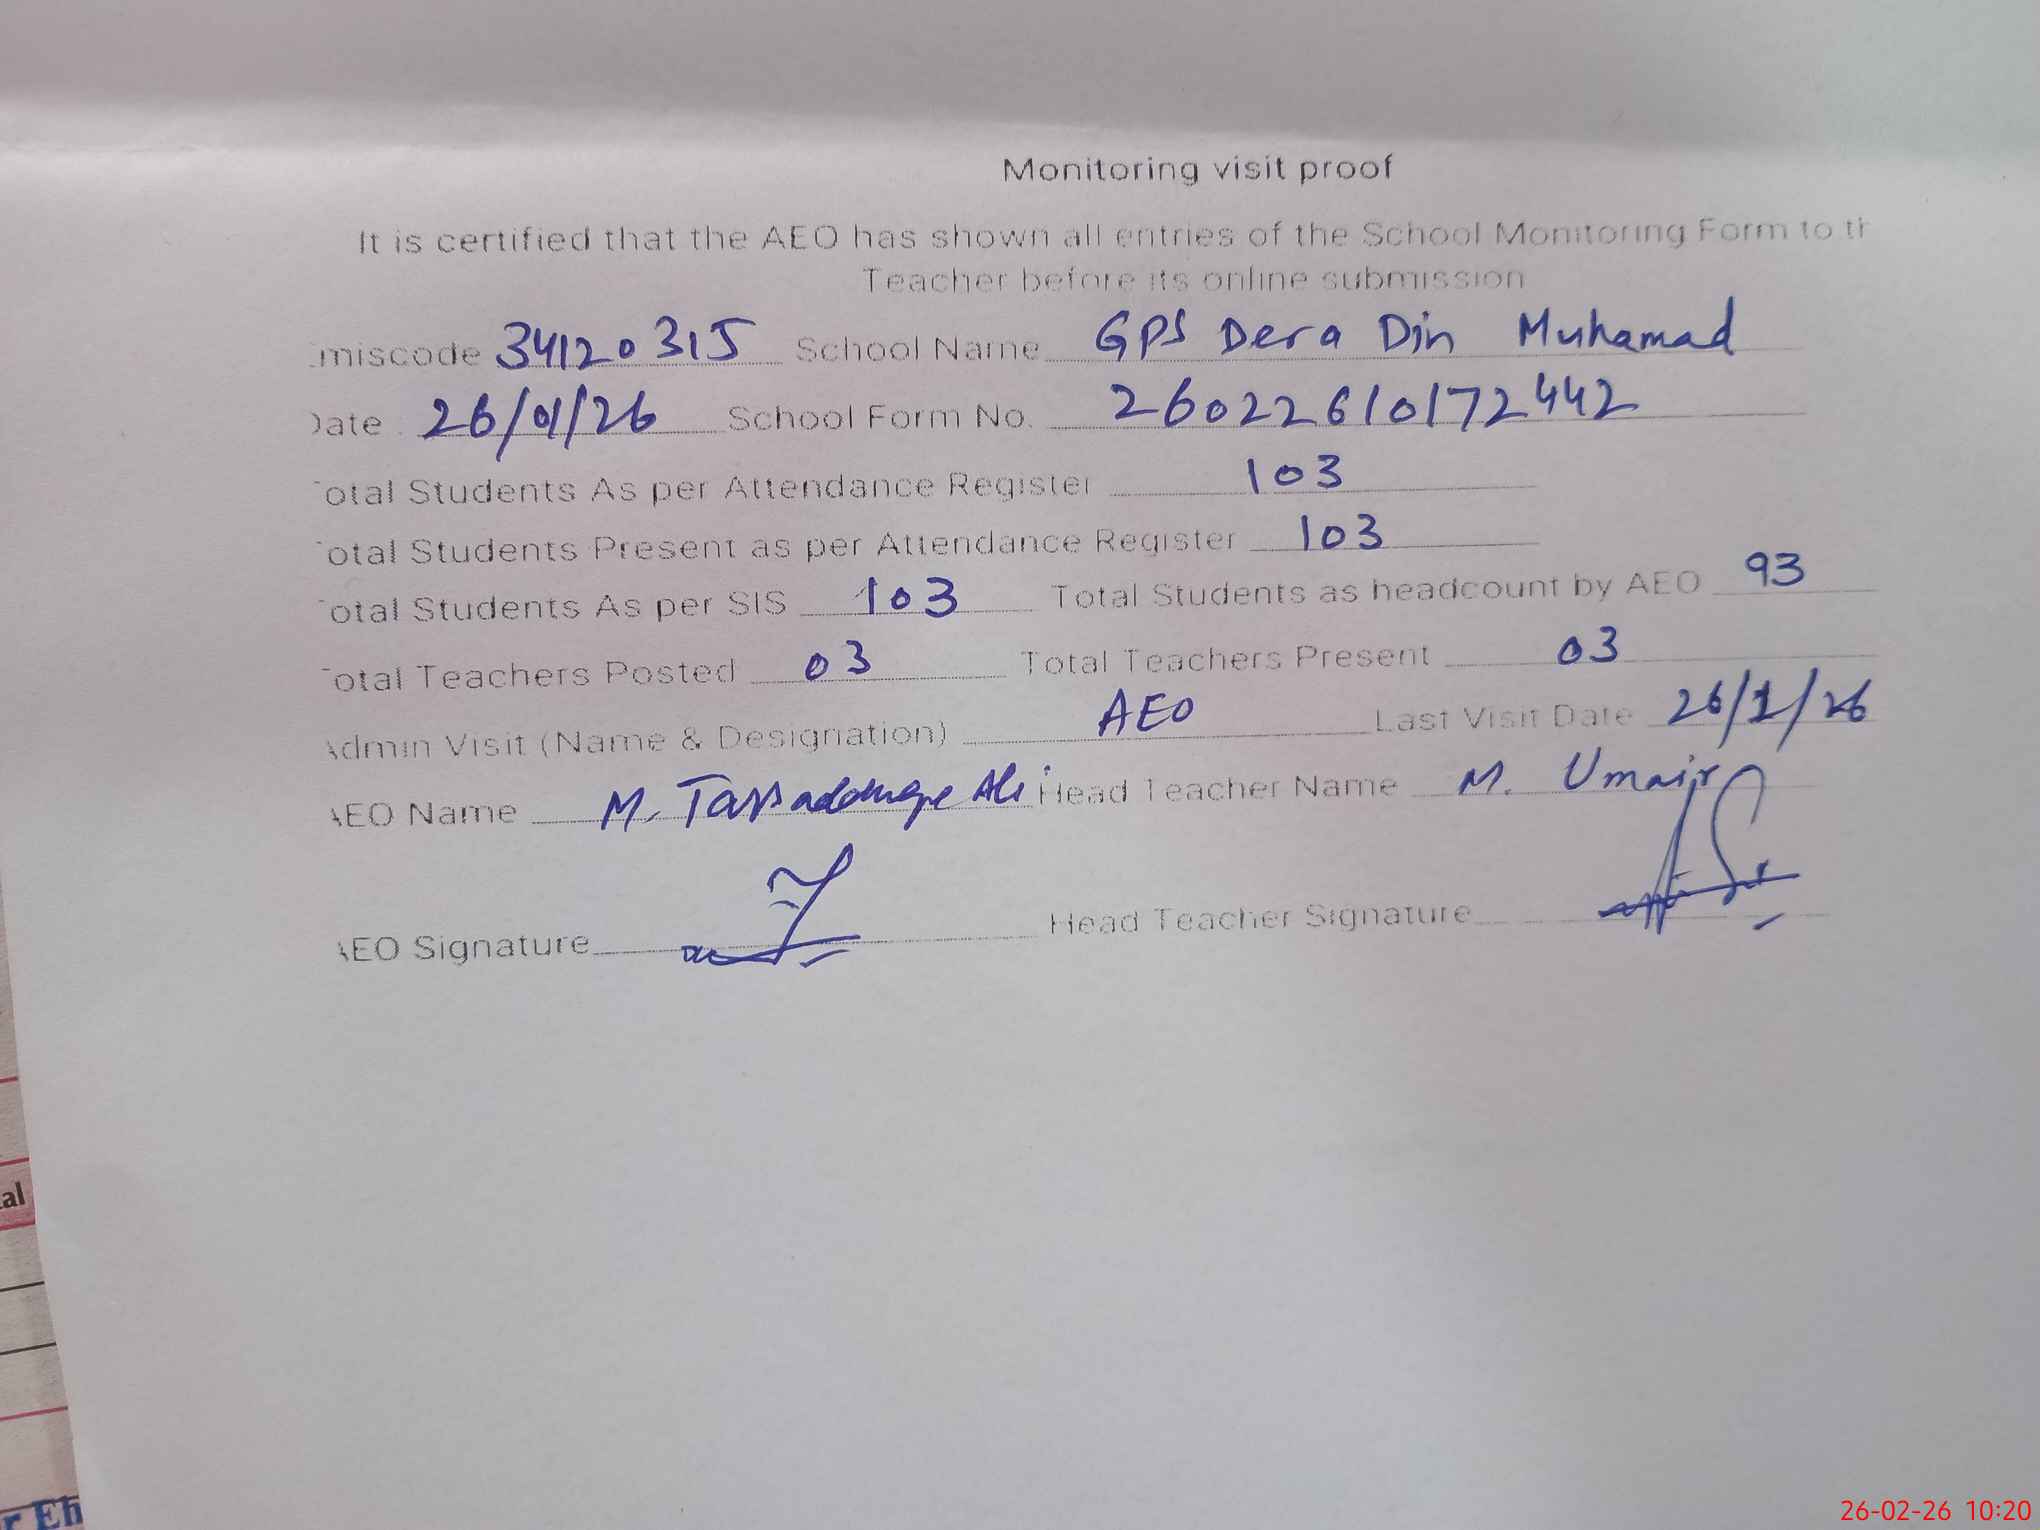 Monitoring visit proof
It is certified that the AEO has shown all entries of the School Monitoring Form to th
Teacher before its online submission
miscode 34120315 School Name GPS Dera Din Muhamad
Date 26/01/26 School Form No. 26022610172442
otal Students As per Attendance Register 103
otal Students Present as per Attendance Register 103
otal Students As per SIS 103 Total Students as headcount by AEO 93
otal Teachers Posted 03 Total Teachers Present 03
Admin Visit (Name & Designation) AEO Last Visit Date 26/1/26
AEO Name M. Ali Head Teacher Name M. Umair
AEO Signature Head Teacher Signature
al
r Eh
26-02-26 10:20